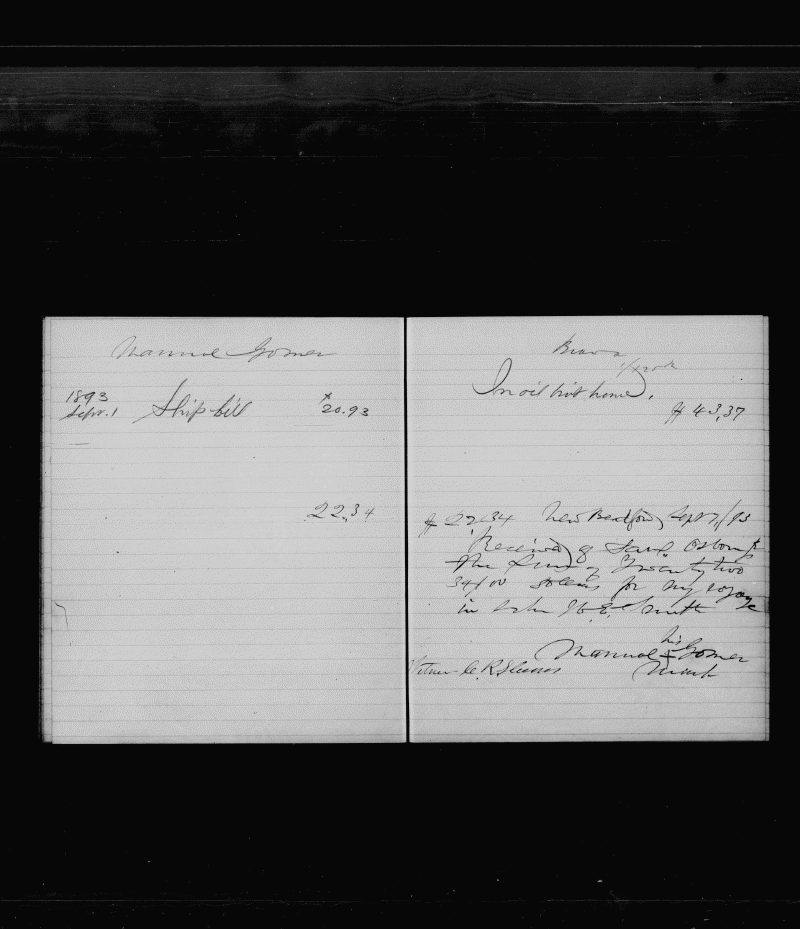 Manuel Gomer
1893
Sepr. 1 Ship bill 20.93
22.34
Brava
In oil bot home.
$43,37
$22.34 New Bedford, Sept 2, /93
Received of Saml Osborn Jr
The Sum of Twenty two
34/100 dollars for my voyage
in Schr E. Smith
his
Manuel + Gomer
mark
Witness C. R. Sherman